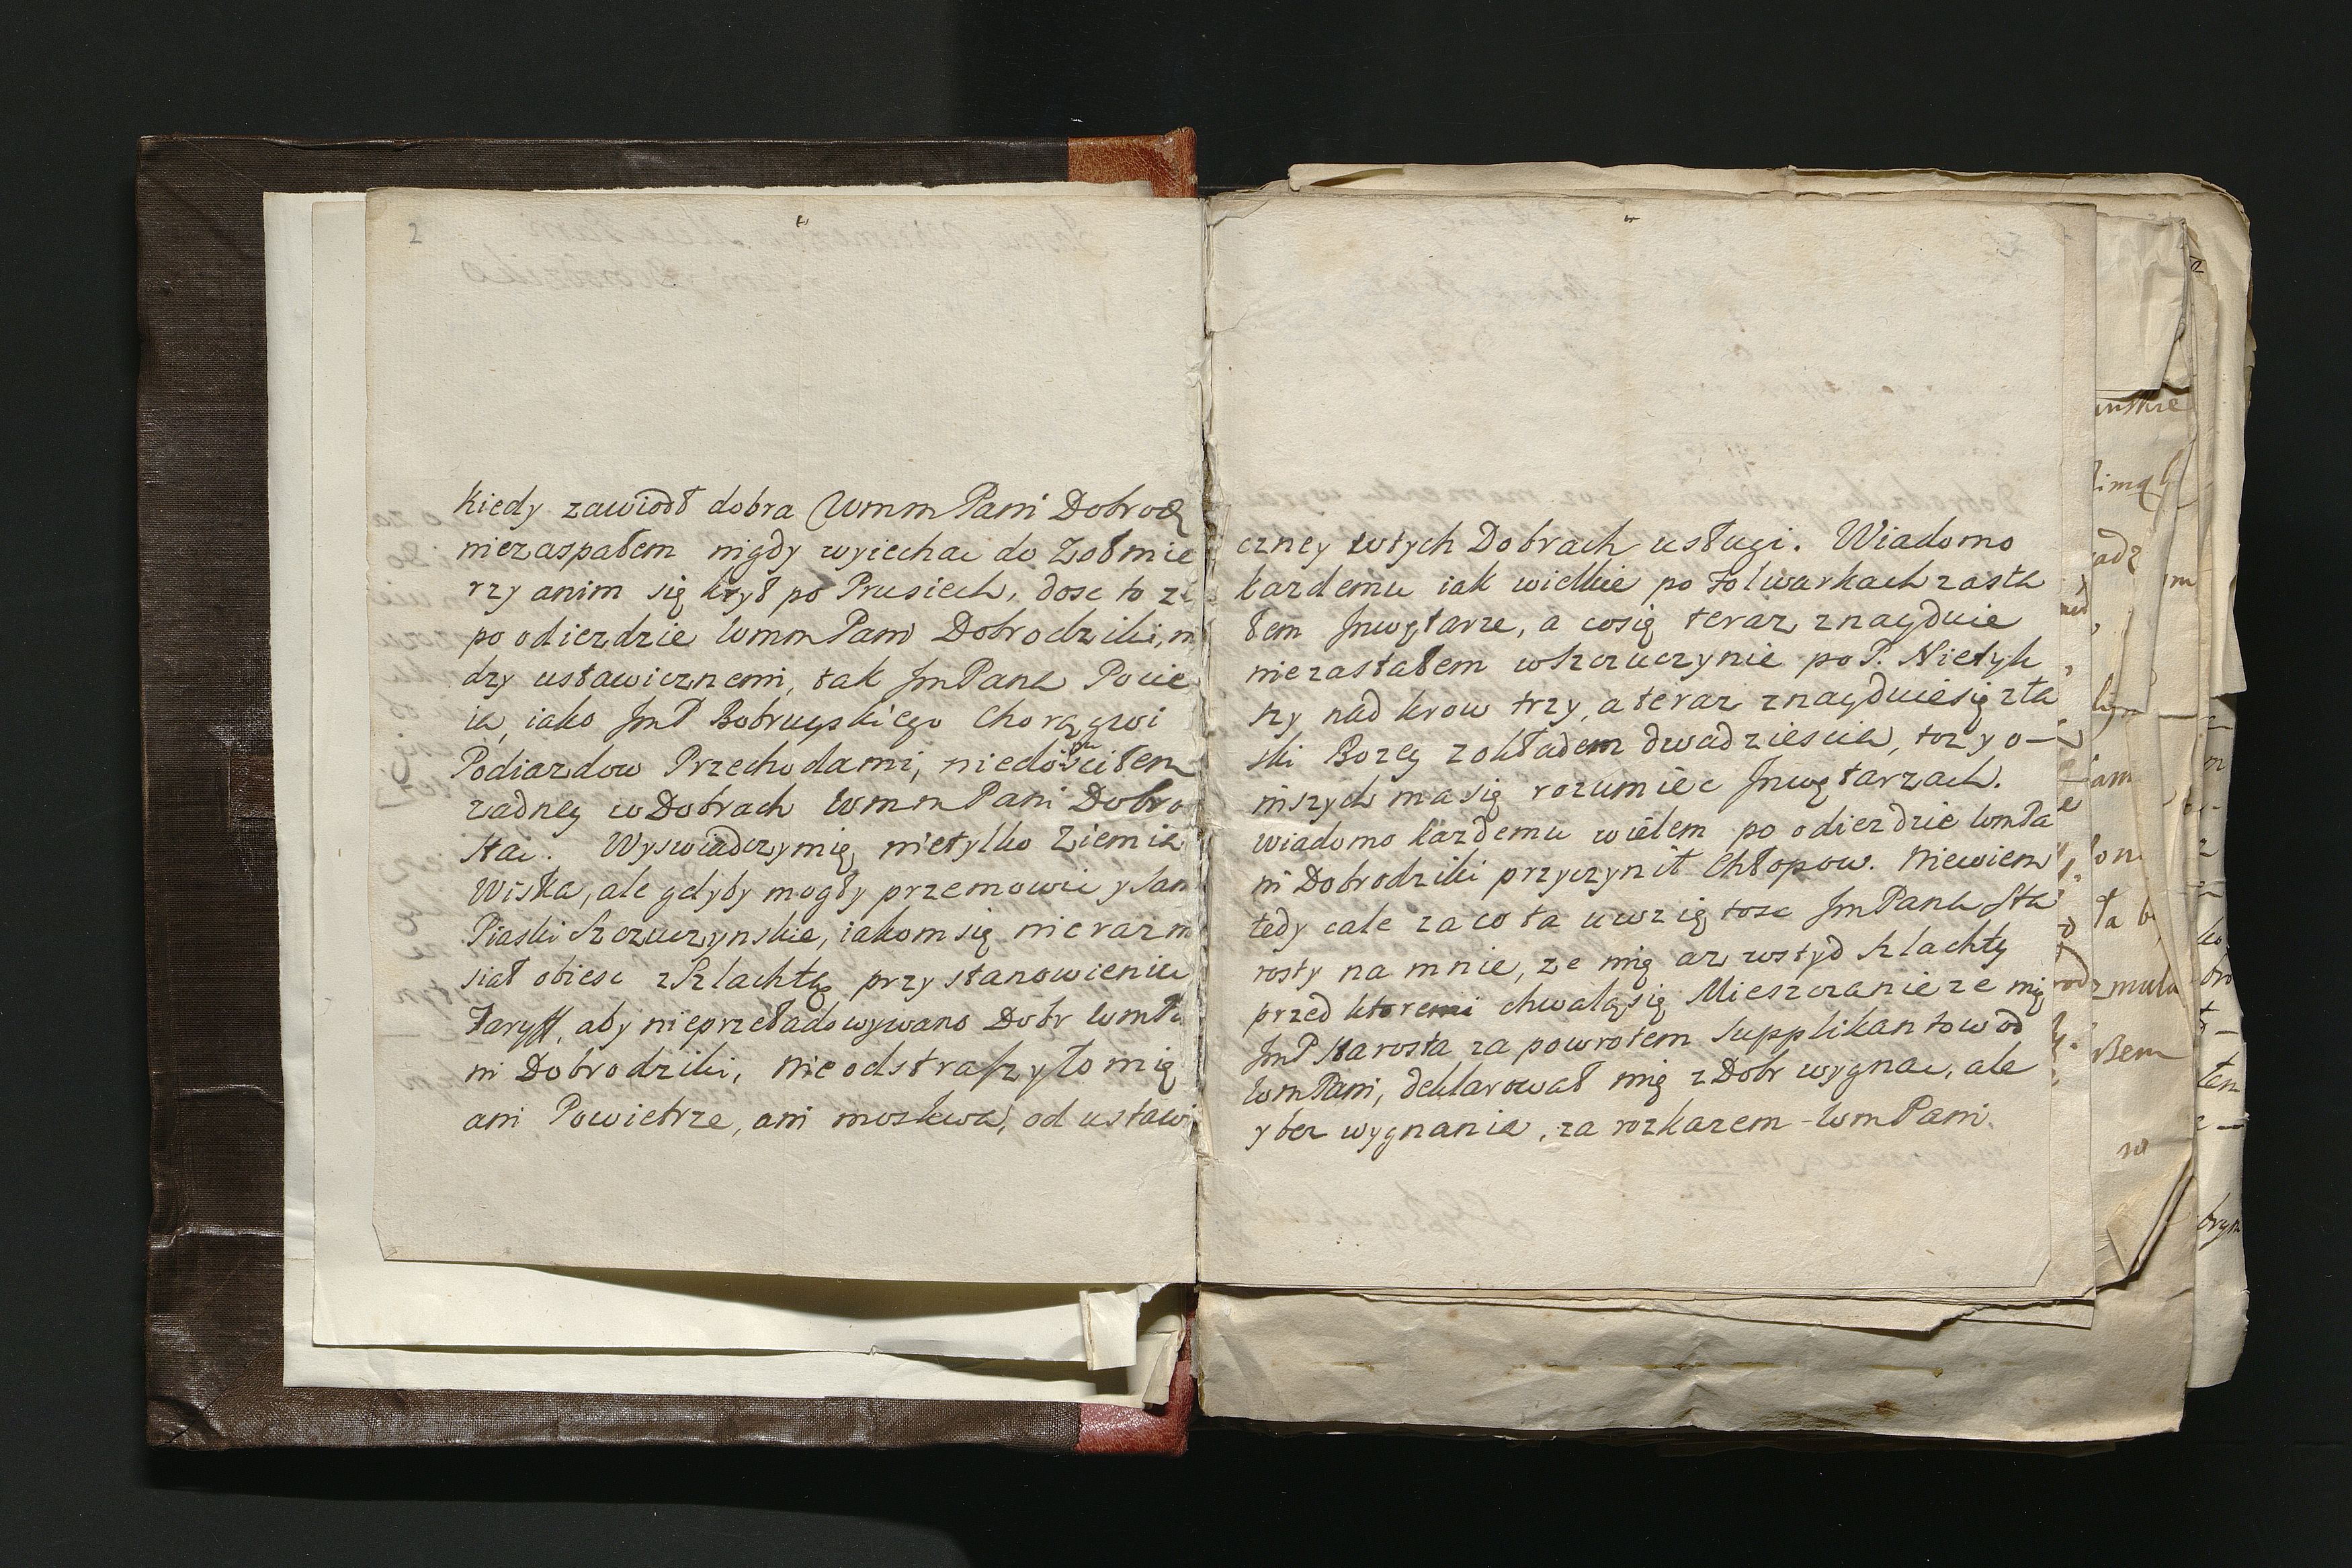 2
Kiedy zawiodł dobra WmmPani Dobrodz
niezaspałem nigdy wyiechac do Zołmie
rzy anim się krył po Prusiech, dosc to z
po odiezdzie WmmPani Dobrodziki, m
dzy ustawicznemi, tak JmPana Pocie
ia, iako JmP Bobruyskiego Chorągwi
Podiazdow Przechodami, niedopuscilem
zadney w Dobrach WmmPani Dobro
stac. Wyswiadczymię nietylko Ziemia
Wiska, ale gdyby mogły przemowic y San
Piaski Szczuczynskie, iakom się nieraz m
siał obiesc z Szlachtą przy stanowieniu
Taryff, aby nieprzeładowywano Dobr WmPa
ni Dobrodziki, nieodstraszyło mię
ani Powietrze, ani moskwa, od ustawi
czney wtych Dobrach usługi. Wiadomo
kazdemu iak wielkie po Folwarkach zasta
łem Jnwętarze, a cosię teraz znayduie
niezastałem wSzczuczynie poP. Nietyk
szy nad krow trzy, a teraz znayduiesię złas
ski Bozey zokładem dwadziescia, toz y o
inszych masię rozumiec Jnwętarzach.
Wiadomo kazdemu wielem po odiezdzie WmPa
ni Dobrodziki przyczynił Chłopow. Niewiem
tedy cale zaco ta uwziętosc JmPana Sta
rosty na mnie, ze mię az wstyd Szlachty
przed ktoremi chwaląsię Mieszczanie ze mię
JmP Starosta za powrotem Supplikantow od
WmPani, deklarował mię z Dobr wygnac, ale
y bez wygnania, za rozkazem WmPani